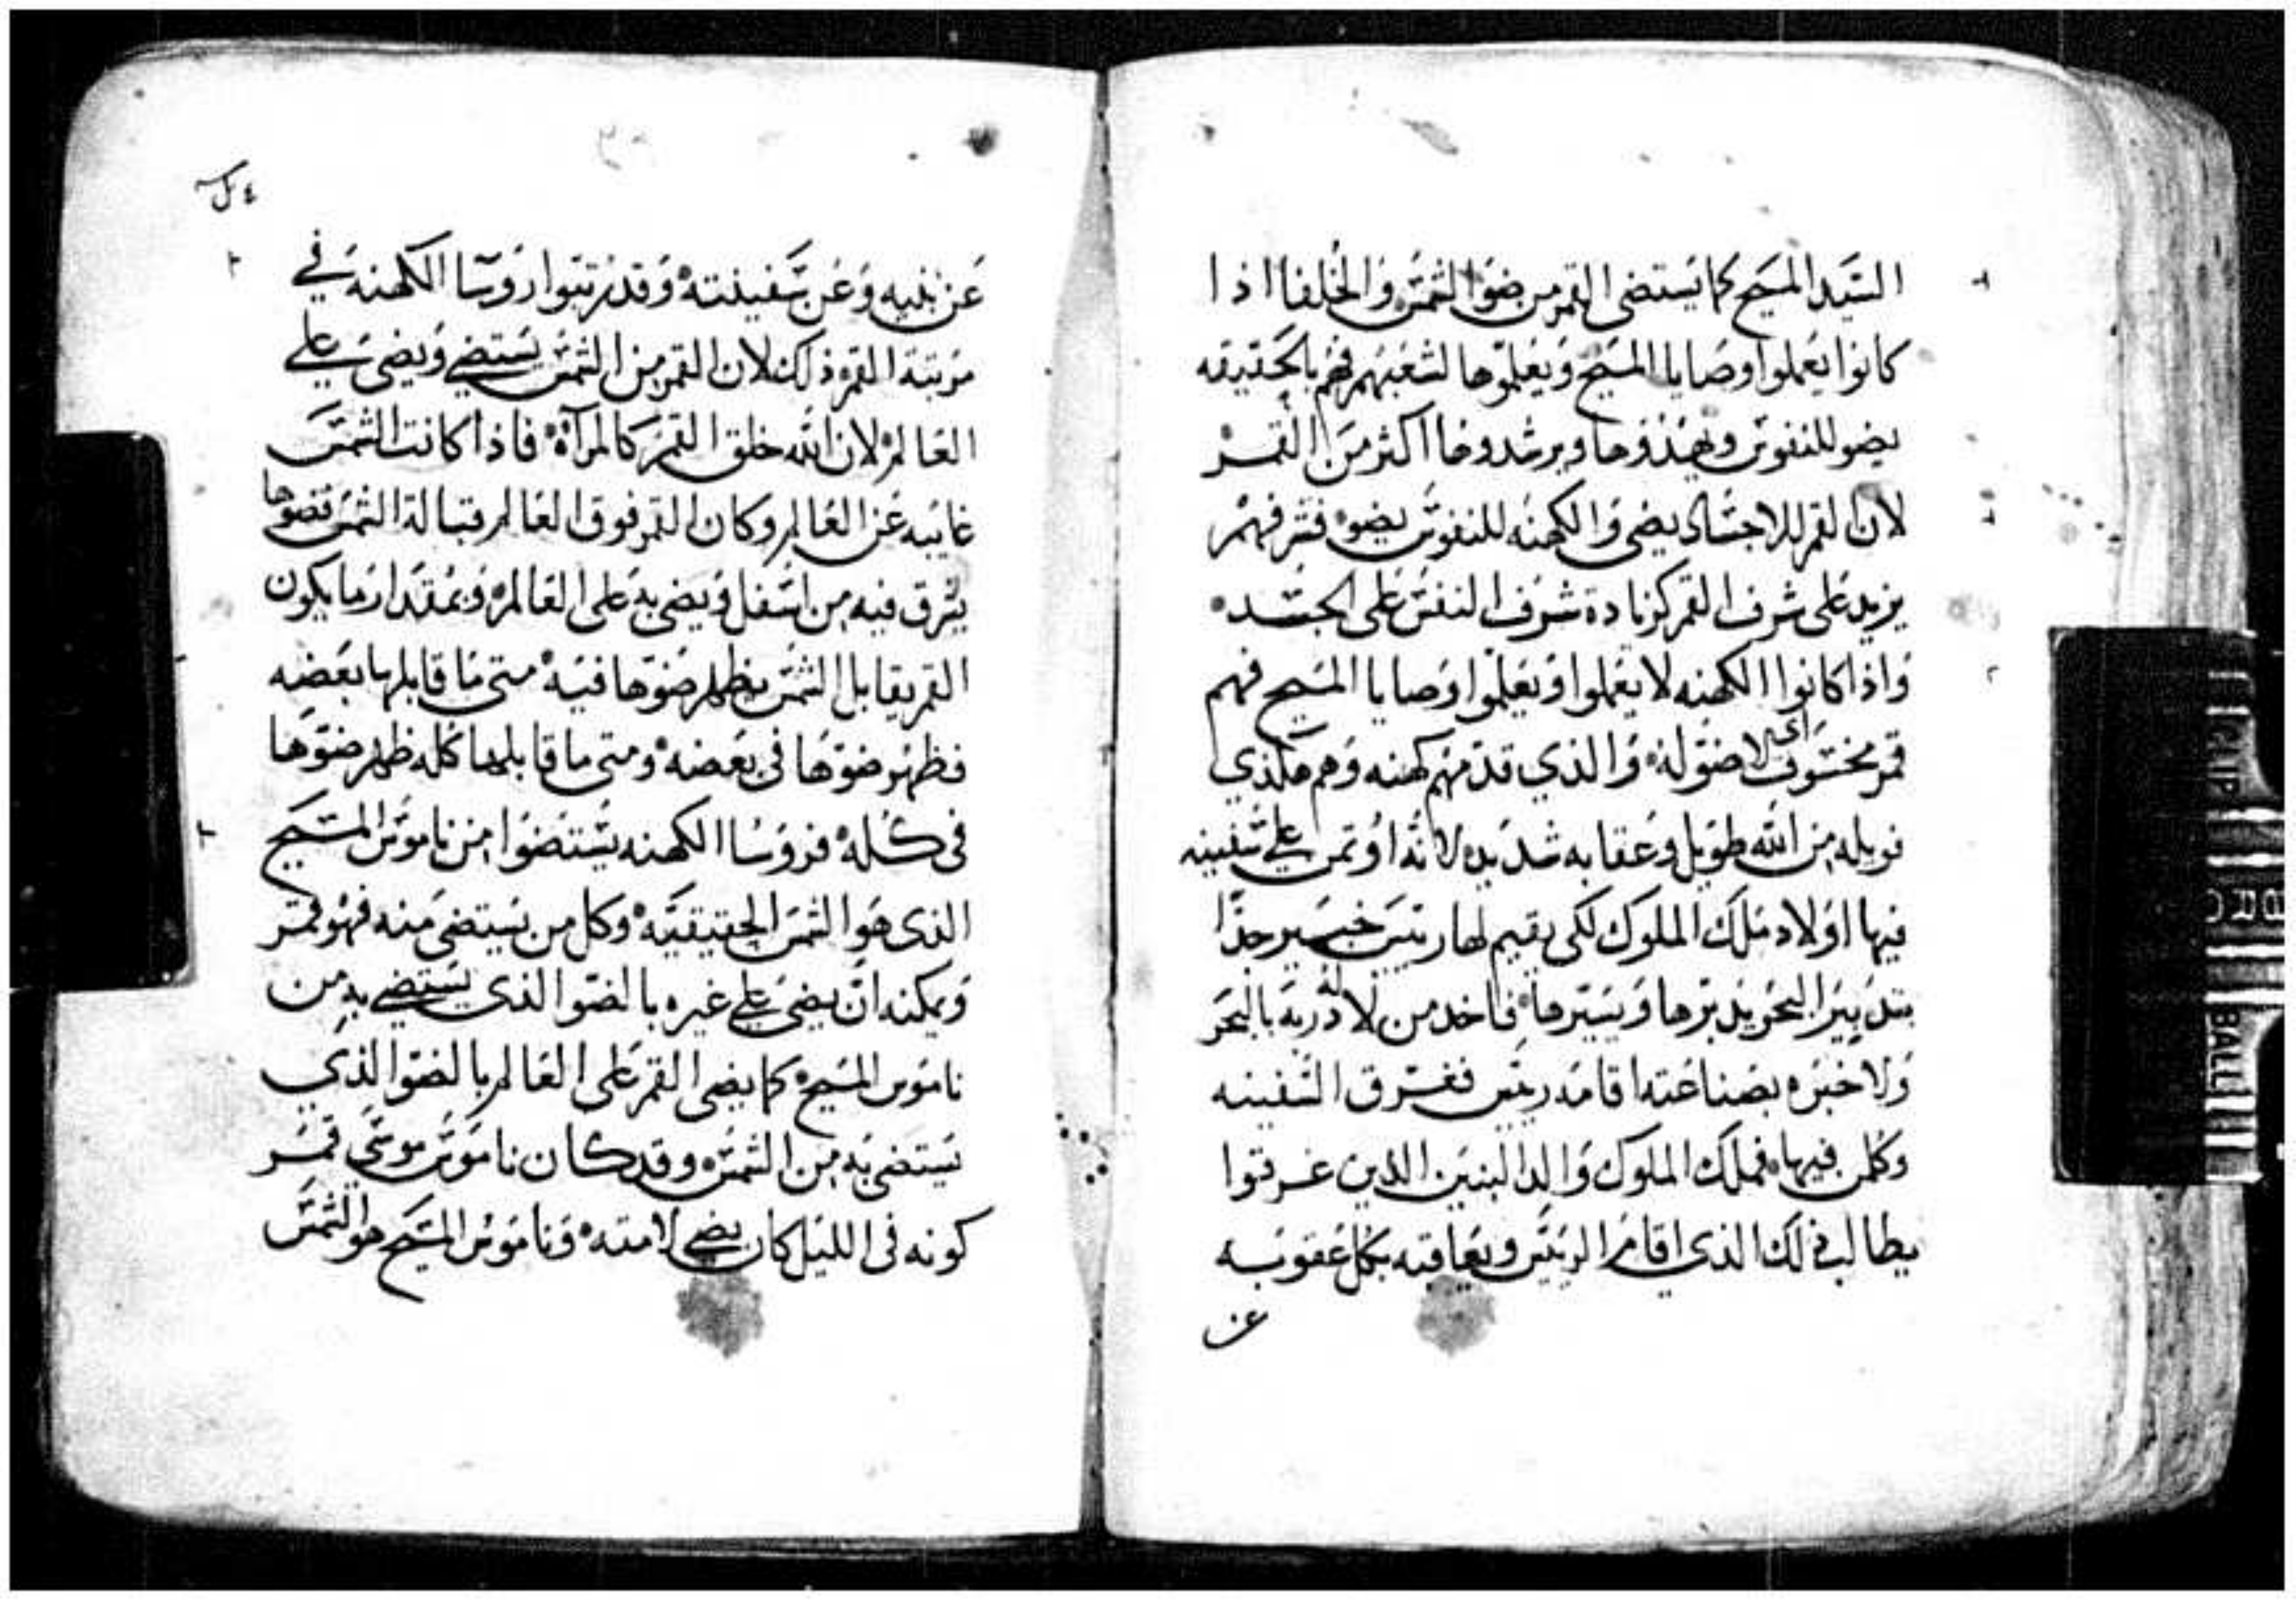 السيد المسيح كما يستضى القمر من ضوا الشمس والخلفا اذا
كانوا يعملوا وصايا المسيح ويعلموها لشعبهم فهم بالحقيقه
يضو للنفوس ويهذوها ويرشدوها اكثر من القمر
لان القمر للاجساد يضى والكهنه للنفوس يضوه فشرفهم
يزيد على شرف القمر كزيادة شرف النفس على الجسد
واذا كانوا الكهنه لا يعملوا ويعلموا وصايا المسيح فهم
قمر مخسوف اى لا ضو له والذي قدمهم كهنه وهم هكذي
فويله من الله طويل وعقابه شديد لانه اوتمن على سفينه
فيها اولاد ملك الملوك لكى يقيم لها ريس خبير جدا
بتدبير البحر يدبرها ويسيرها فاخد من لا له دربه بالبحر
ولا خبره بصناعته اقامه ريس فغرق السفينه
وكلمن فيها فملك الملوك والد البنين الذين غرقوا
يطالب ذلك الذى اقام الريس ويعاقبه بكل عقوبه
عن
عن بنيه وعن سفينته وقد رتبوا روسا الكهنه في
مرتبة القمر ذلك لان القمر من الشمس يستضي ويضى على
العالم لان الله خلق القمر كالمرآة فاذا كانت الشمس
غايبه عن العالم وكان القمر فوق العالم قبالة الشمس فضوها
يشرق فيه من اسفل ويضى به على العالم وبمقدار ما يكون
القمر يقابل الشمس يظهر ضوها فيه متى ما قابلها بعضه
فظهر ضوها فى بعضه ومتى ما قابلها كله ظهر ضوها
فى كله فروسا الكهنه يستضوا من ناموس المسيح
الذى هو الشمس الحقيقيه وكل من يستضى منه فهو قمر
ويمكنه ان يضى على غيره بالضو الذى يستضي به من
ناموس المسيح كما يضى القمر على العالم بالضو الذي
يستضى به من الشمس وقد كان ناموس موسى قمر
كونه فى الليل كان يضى لامته وناموس المسيح هو الشمس